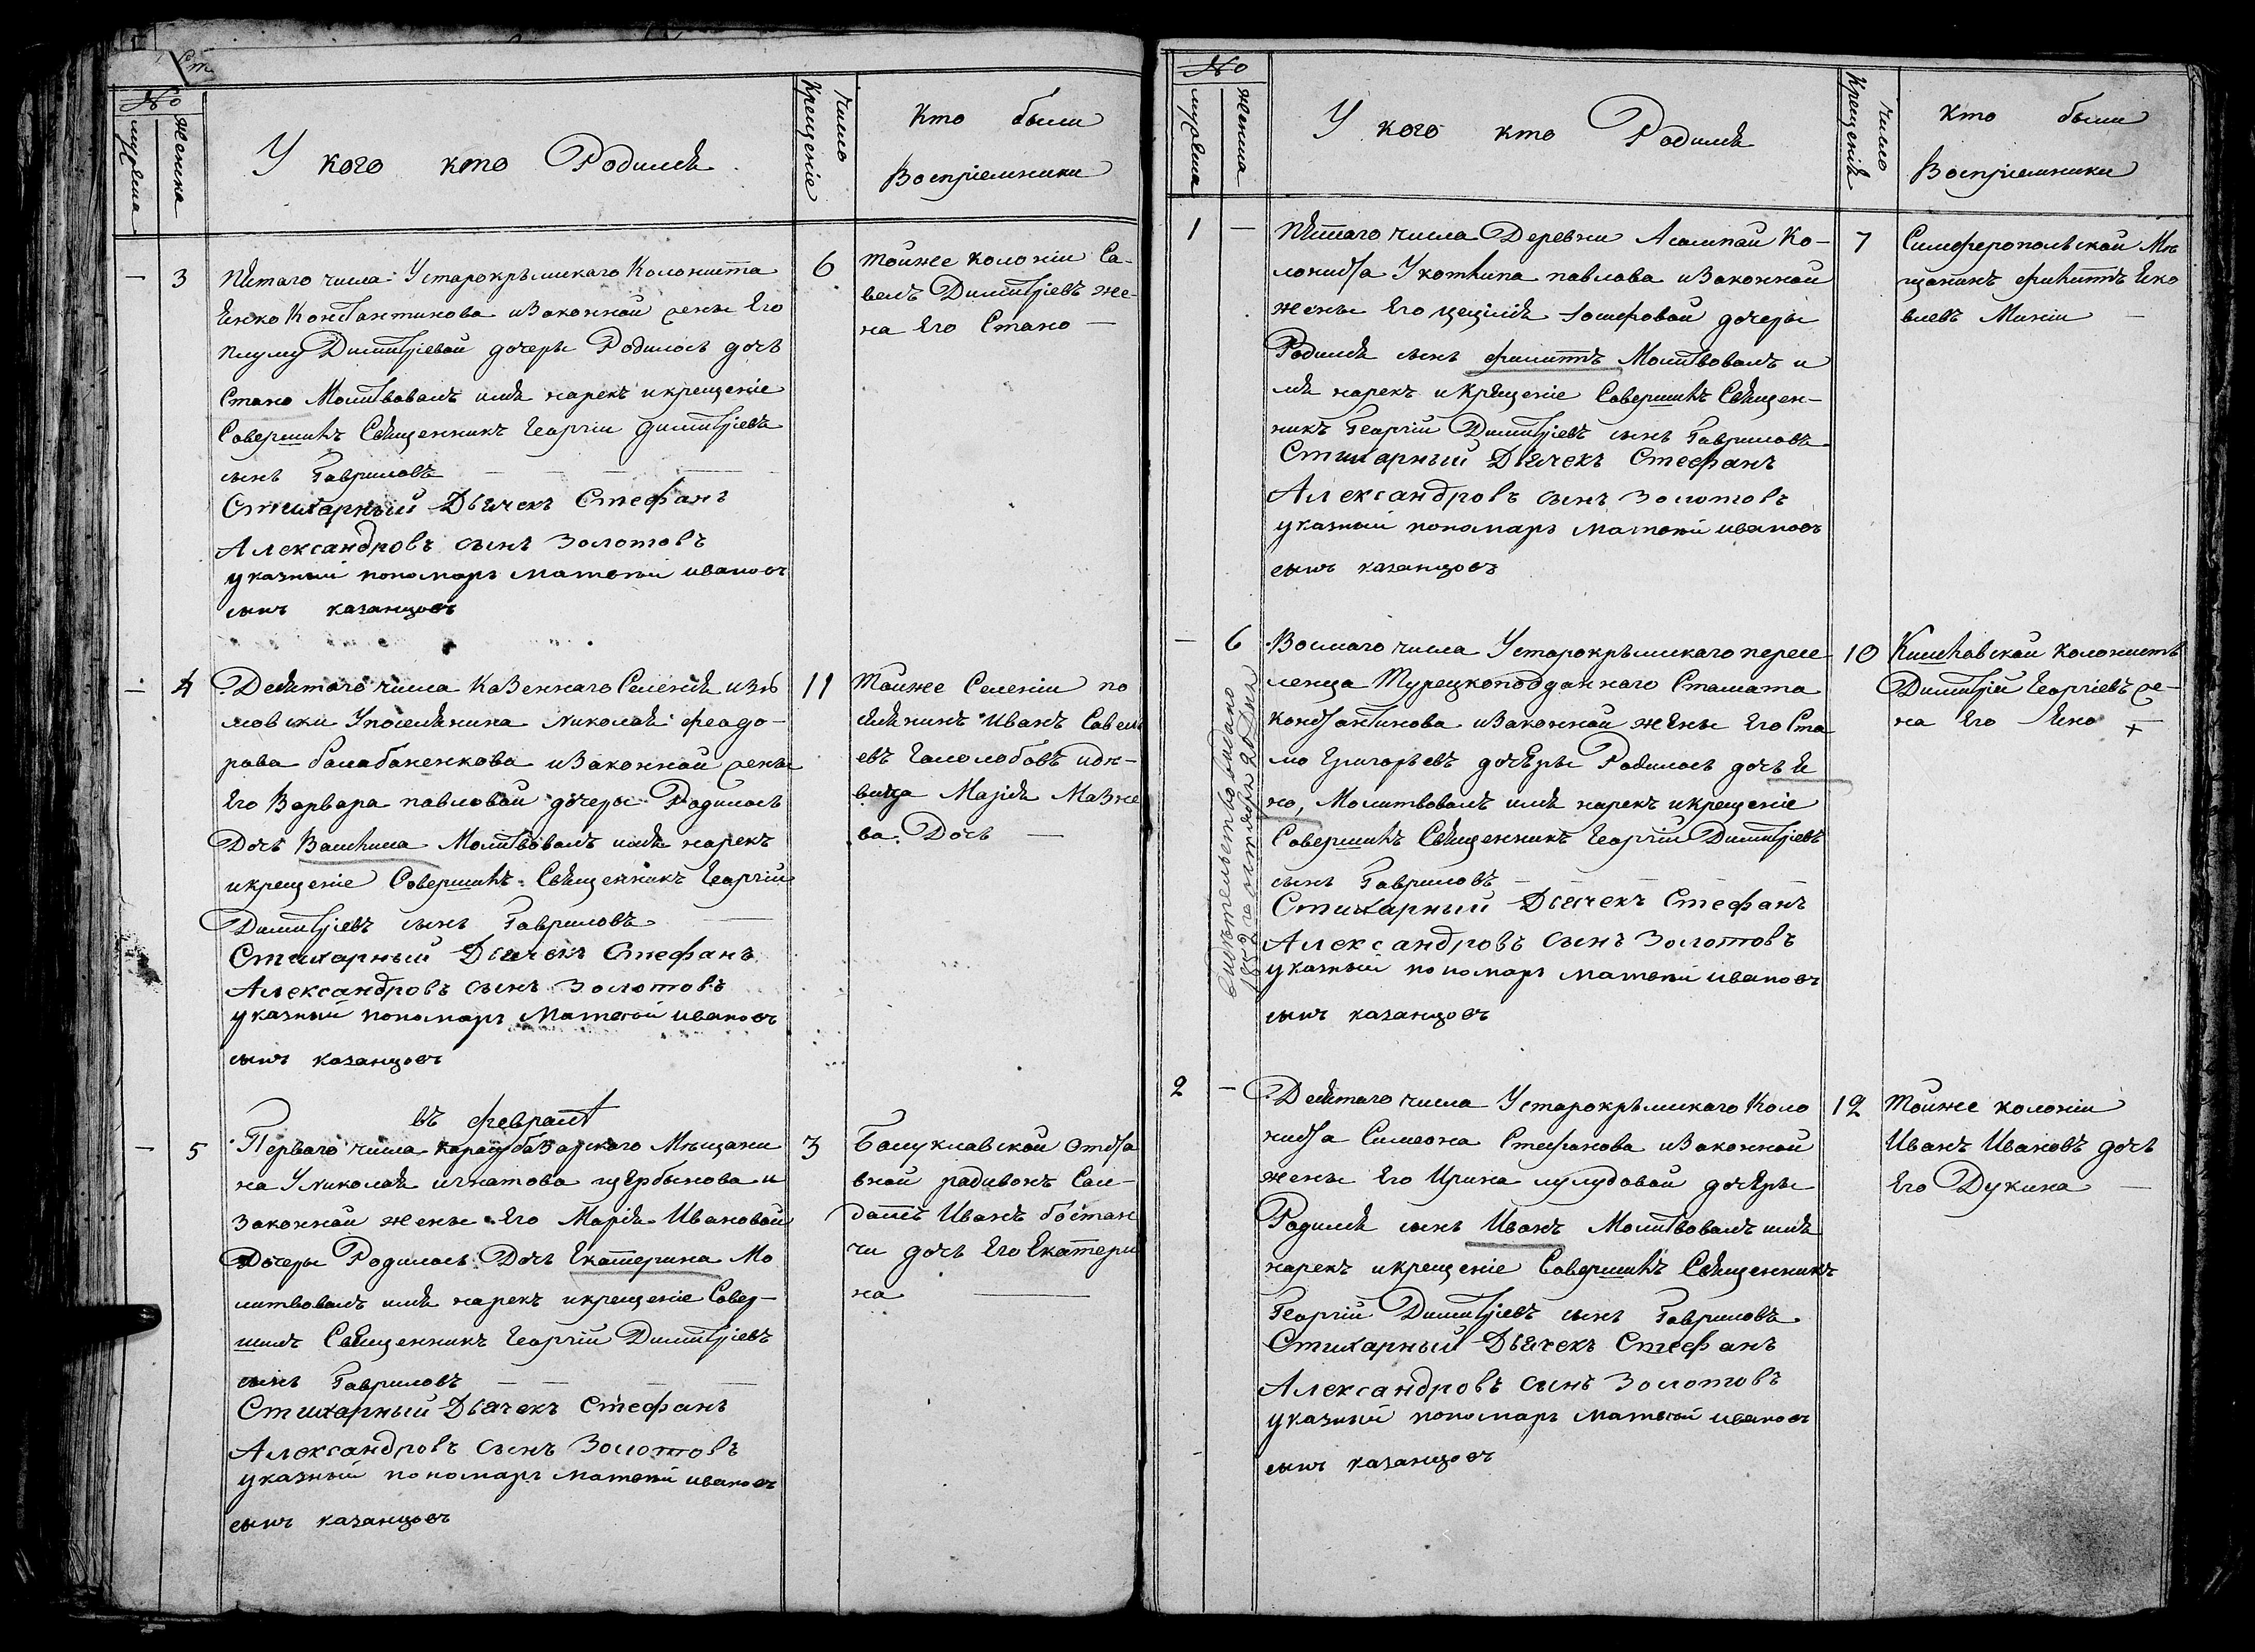 №
мужеска
женска
У кого кто Родился
Число
Крещение
Кто были
Восприемники
— 3
пятаго числа Устарокрымскаго Колониста
Енко Константинова иЗаконной жены Его
Димитріевой дочеры Родилось дочь
Стано Молитвовалъ имя нарекъ икрещеніе
Совершилъ Священникъ Георгіи димитріевъ
сынъ Гавриловъ
Стихарный Дьячекъ Стефанъ
Александровъ сынъ Золотовъ
указный пономарь матвей ивановъ
сынъ казанцовъ
6
тойже колоніи Са-
велъ Димитріевъ же-
на Его Стано —
— 4
Десятаго числа Казеннаго Селенія изю
мовки Упоселянина Николая феодо-
рова балабаненкова иЗаконной жены
Его Варвара павловой дочеры Родилось
Дочь Молитвовалъ имя нарекъ
икрещеніе Совершилъ Священникъ Георгіи
Димитріевъ сынъ Гавриловъ
Стихарный Дьячекъ Стефанъ
Александровъ сынъ Золотовъ
указный пономарь Матвей ивановъ
сынъ казанцовъ
11
Тойже Селеніи по
селянинъ Иванъ Савель
евъ идѣ-
вица Марія
ва Дочь —
въ февралѣ
— 5
Перваго числа карасубаЗарскаго Мѣщани
на Уииколая игнатова щербынова и
Законной жены Его Марія Ивановой
Дочеры Родилось Дочь Екатерина Мо
литвовалъ имя нарекъ икрещеніе Совер-
шилъ Священникъ Георгій Димитріевъ
сынъ Гавриловъ
Стихарный Дьячекъ Стефанъ
Александровъ сынъ Золотовъ
указный пономарь матвей ивановъ
сынъ казанцовъ
3
Балуклавской Отста
вной радивонъ Сал-
датъ Иванъ бостан
чи дочь Его Екатери
на
№
мужеска
женска
У кого кто Родился
Число
Крещенія
Кто были
Восприемники
1 —
пятаго числа Деревни Ко-
лониста павлова иЗаконной
жены Его цецилія Іосифовой дочеры
Родился сынъ филиппъ Молитвовалъ и
мя нарекъ икрещеніе Совершилъ Священ-
никъ Георгій Димитріевъ сынъ Гавриловъ
Стихарный Дьячекъ Стефанъ
Александровъ сынъ Золотовъ
указный пономарь матвей ивановъ
сынъ казанцовъ
7
Симферопольской Мѣ
щанинъ филиппъ Яко
влевъ
— 6
Восмаго числа Устарокрымскаго пересе
ленца Турецкоподданнаго Стамата
Константинова иЗаконной жены Его Ста
мо Григорьевъ дочеры Родилось дочь Я
но, Молитвовалъ имя нарекъ икрещеніе
Совершилъ Священникъ Георгіи Димитріевъ
сынъ Гавриловъ
Стихарный Дьячекъ Стефанъ
Александровъ сынъ Золотовъ
указный пономарь матвей ивановъ
сынъ казанцовъ
Свидѣтельство выдано
1852го октября 20 Дня
10
Кишлавской колонистъ
Димитрій Георгіевъ же-
на Его Яно +
2 —
Десятаго числа Устарокрымскаго Коло
ниста Симеона Стефанова иЗаконной
жены Его Ирина лулудовой дочеры
Родился сынъ Иванъ Молитвовалъ имя
нарекъ икрещеніе Совершилъ Священникъ
Георгій Димитріевъ сынъ Гавриловъ
Стихарный Дьячекъ Стефанъ
Александровъ сынъ Золотовъ
указный пономарь матвей ивановъ
сынъ казанцовъ
12
Тойже колоніи
Иванъ Ивановъ дочь
Его Дукина —